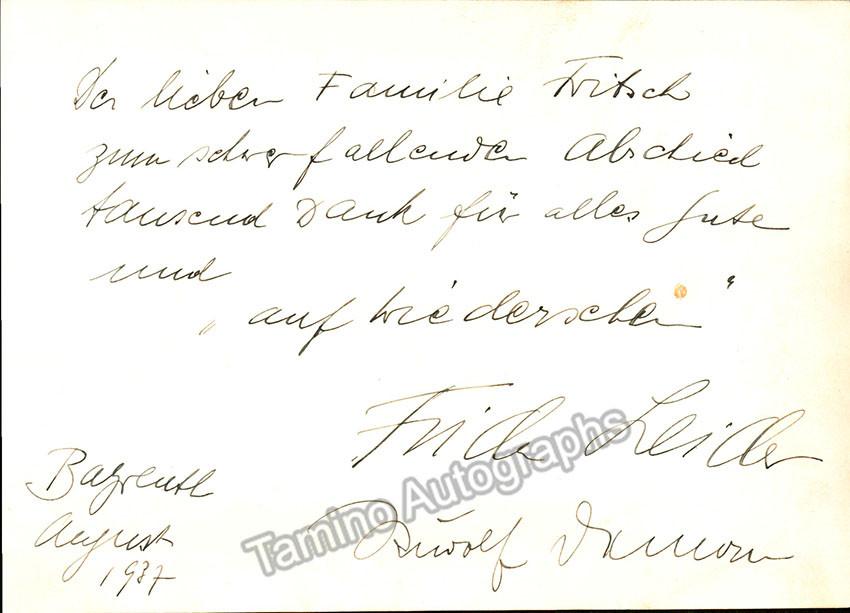 Der lieben Familie Fritsch
zum schwerfallenden Abschied
tausend Dank für alles Gute
und
„auf Wiedersehen“
Frida Leider
Rudolf
Bayreuth
August
1937
Tamino Autographs